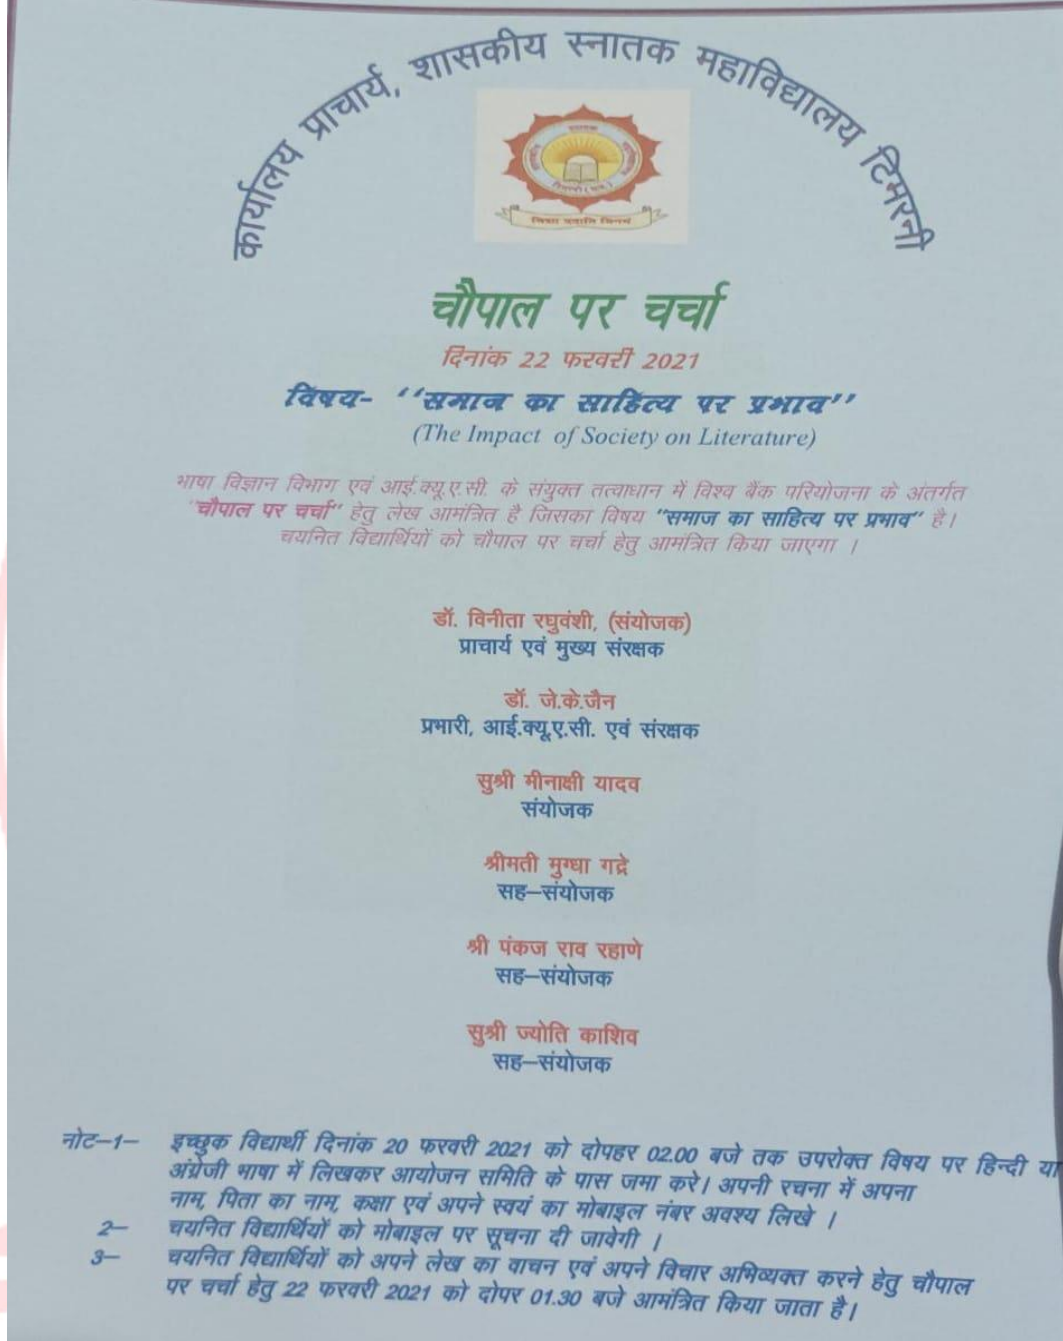 कार्यालय प्राचार्य, शासकीय स्नातक महाविद्यालय टिमरनी
चौपाल पर चर्चा
दिनांक 22 फरवरी 2021
विषय- ‘‘समाज का साहित्य पर प्रभाव’’
(The Impact of Society on Literature)
भाषा विज्ञान विभाग एवं आई.क्यू.ए.सी. के संयुक्त तत्वाधान में विश्व बैंक परियोजना के अंतर्गत
“चौपाल पर चर्चा” हेतु लेख आमंत्रित है जिसका विषय “समाज का साहित्य पर प्रभाव” है।
चयनित विद्यार्थियों को चौपाल पर चर्चा हेतु आमंत्रित किया जाएगा ।
डॉ. विनीता रघुवंशी, (संयोजक)
प्राचार्य एवं मुख्य संरक्षक
डॉ. जे.के.जैन
प्रभारी, आई.क्यू.ए.सी. एवं संरक्षक
सुश्री मीनाक्षी यादव
संयोजक
श्रीमती मुग्धा गद्रे
सह–संयोजक
श्री पंकज राव रहाणे
सह–संयोजक
सुश्री ज्योति काशिव
सह–संयोजक
नोट–1– इच्छुक विद्यार्थी दिनांक 20 फरवरी 2021 को दोपहर 02.00 बजे तक उपरोक्त विषय पर हिन्दी या
अंग्रेजी भाषा में लिखकर आयोजन समिति के पास जमा करे। अपनी रचना में अपना
नाम, पिता का नाम, कक्षा एवं अपने स्वयं का मोबाइल नंबर अवश्य लिखे ।
2– चयनित विद्यार्थियों को मोबाइल पर सूचना दी जावेगी ।
3– चयनित विद्यार्थियों को अपने लेख का वाचन एवं अपने विचार अभिव्यक्त करने हेतु चौपाल
पर चर्चा हेतु 22 फरवरी 2021 को दोपर 01.30 बजे आमंत्रित किया जाता है।